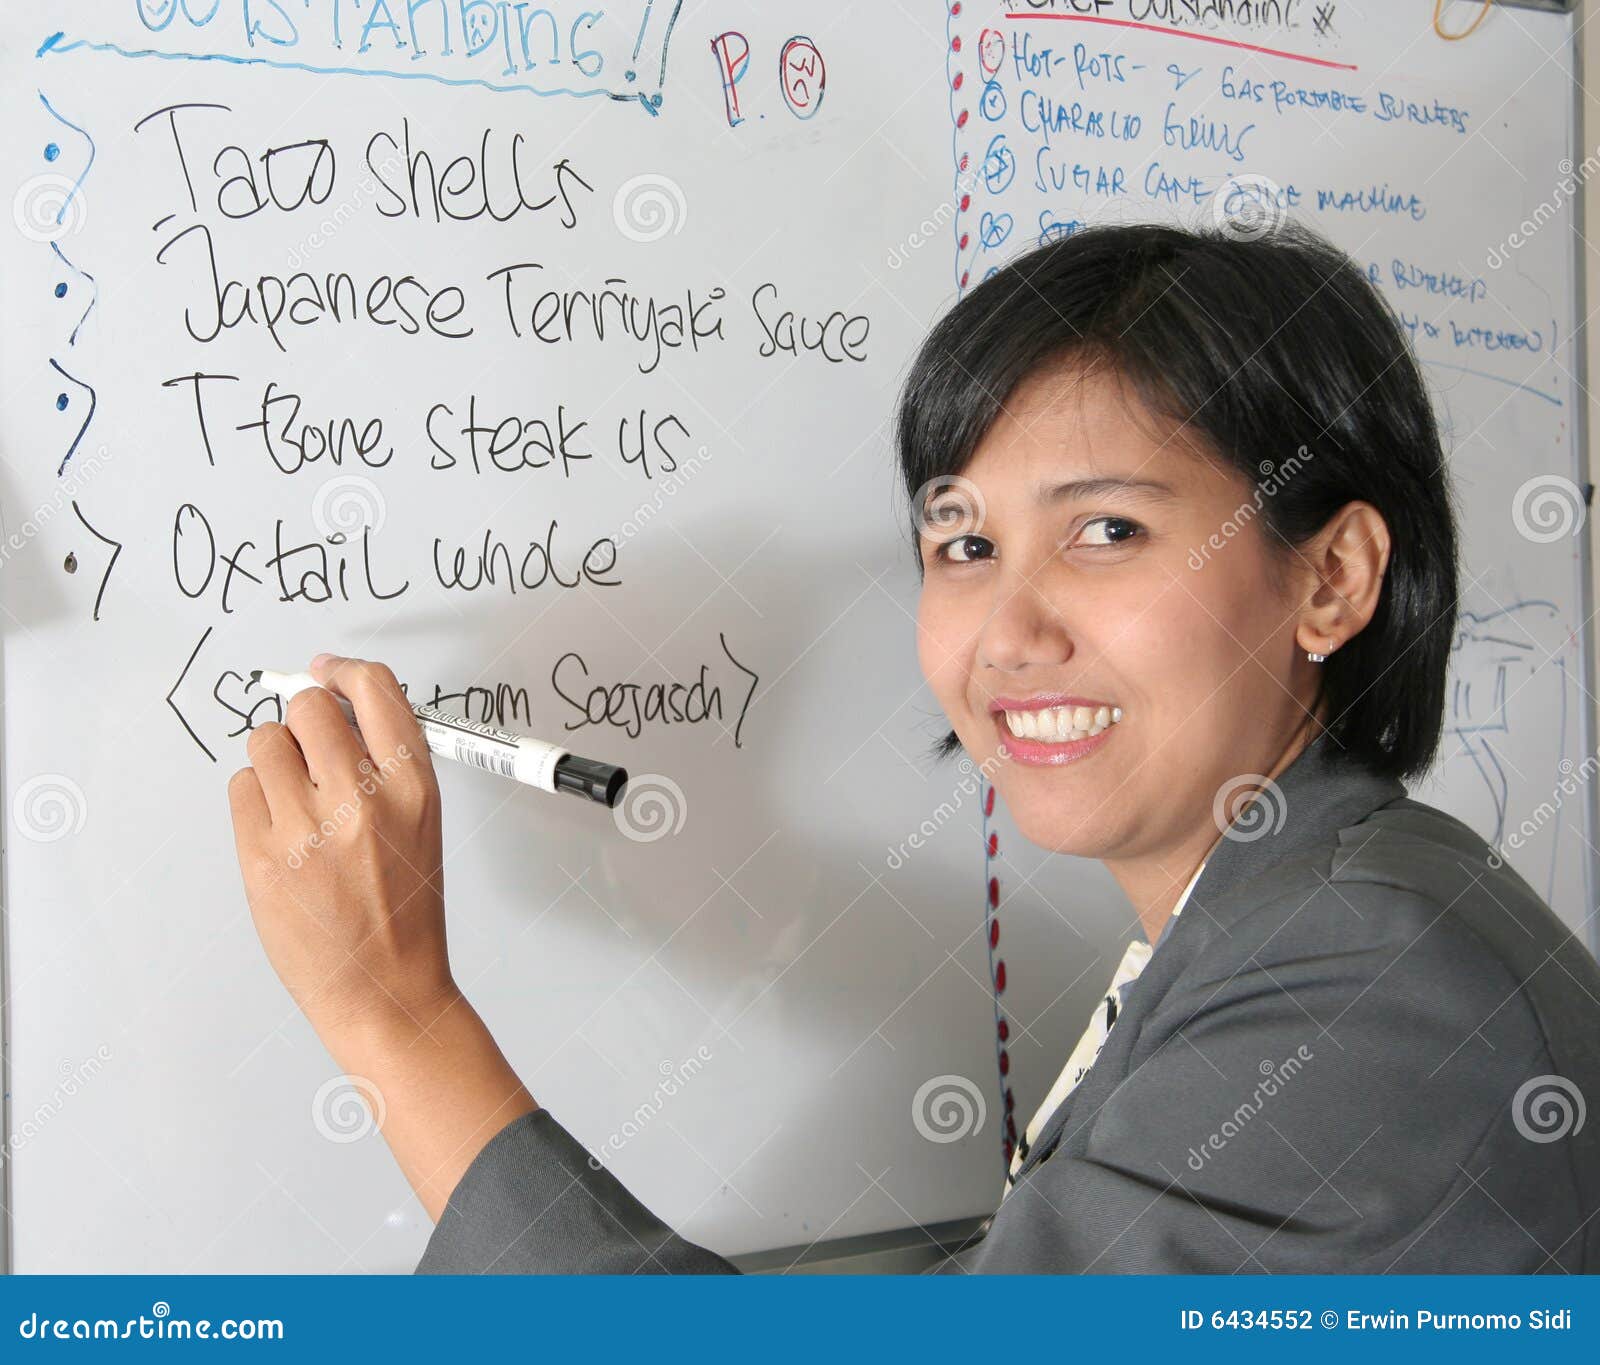 OUTSTANDING!!
P.O
Taco shells
Japanese Terriyaki Sauce
T-Bone steak us
Oxtail whole
from Soejasch
Outstanding #
HOT-POTS- & GAS PORTABLE BURNERS
CHARASCIO GRILLS
SUGAR CANE JUICE MACHINE
dreamstime.com
ID 6434552 © Erwin Purnomo Sidi